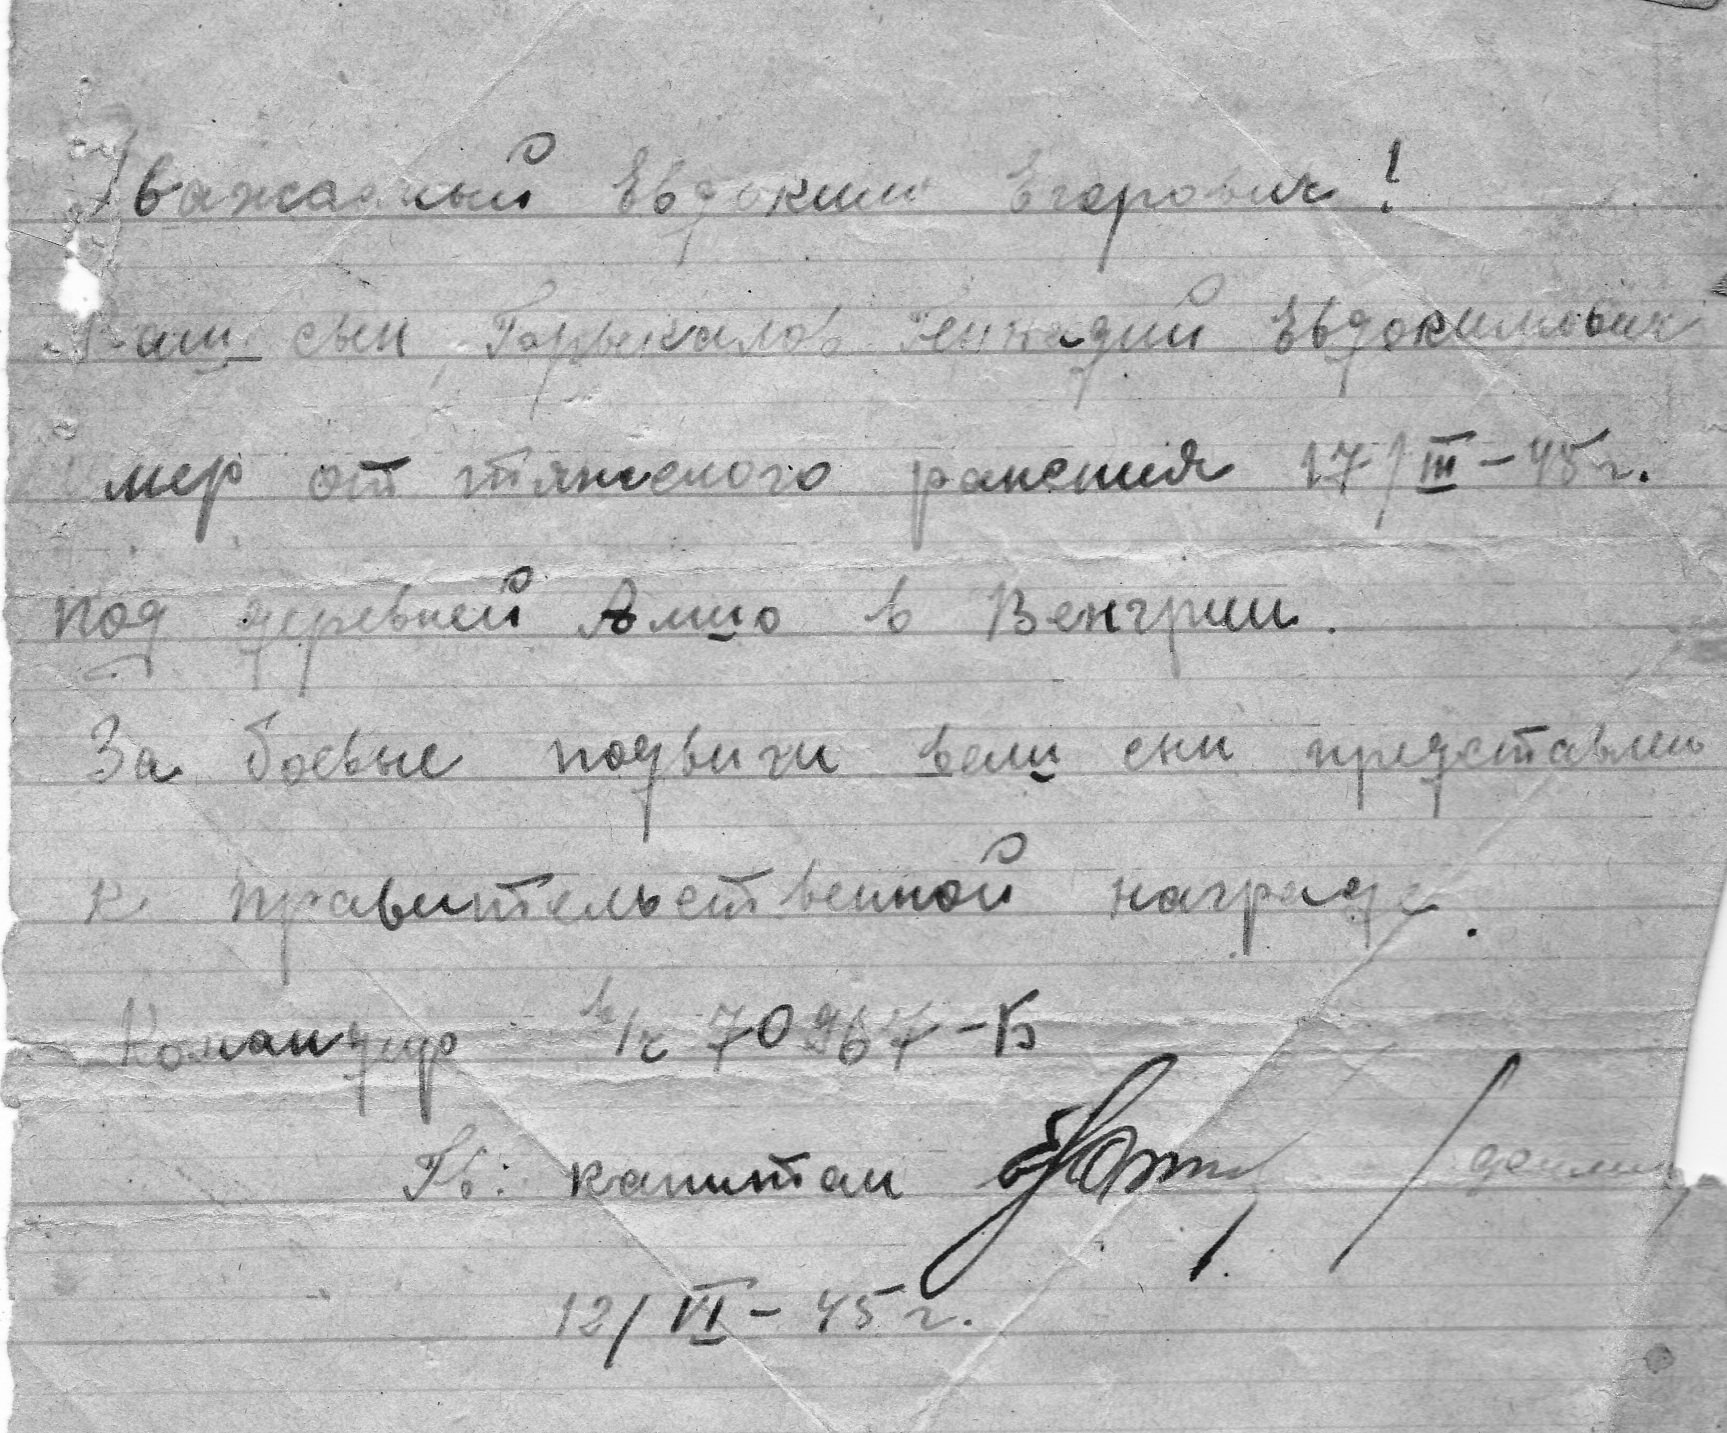 Уважаемый Евдоким Егорович!
Ваш сын Горыкалов Геннадий Евдокимович
умер от тяжелого ранения 17/III-45г.
под деревней в Венгрии.
За боевые подвиги ваш сын представлен
к правительственной награде.
Командир в/ч 70967-Б
Гв. капитан
12/VI-45г.